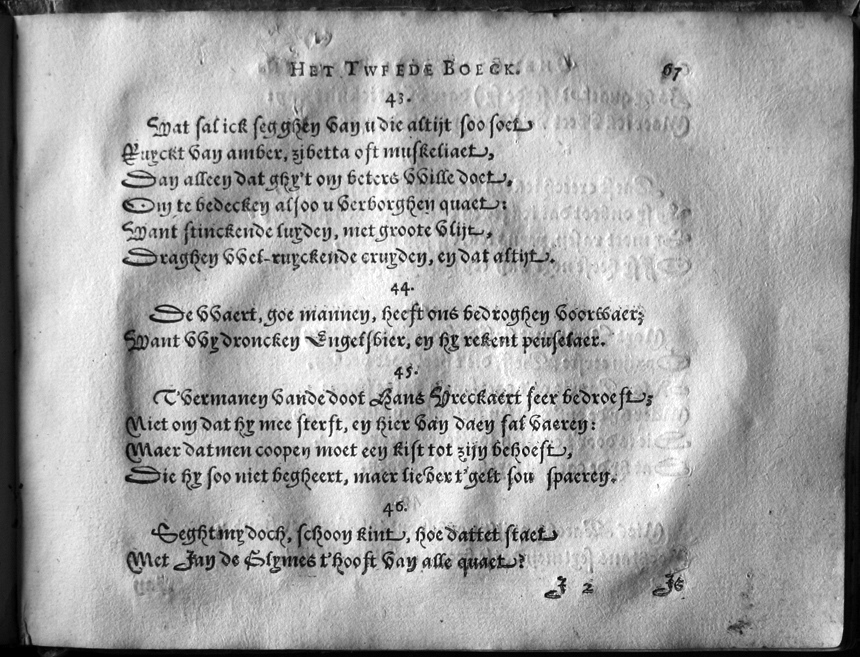 HET TWEEDE BOECK. 67
43.
Wat sal ick segghen van u die altijt soo soet
Ruyckt van amber, zibetta oft muskeliaet,
Dan alleen dat ghy't om beters VVille doet,
Om te bedecken alsoo u verborghen quaet:
Want stinckende luyden, met groote vlijt,
Draghen VVel-ruyckende cruyden, en dat altijt.
44.
De VVaert, goe mannen, heeft ons bedroghen voorwaer;
Want VVy droncken Engelsbier, en hy rekent peuselaer.
45.
T'vermanen vande doot Hans Vreckaert seer bedroeft;
Niet om dat hy mee sterft, en hier van daen sal vaeren:
Maer datmen coopen moet een kist tot zijn behoeft,
Die hy soo niet begheert, maer liever t'gelt sou spaeren.
46.
Seght my doch, schoon kint, hoe dattet staet
Met Jan de Slymes t'hooft van alle quaet?
I 2 Js